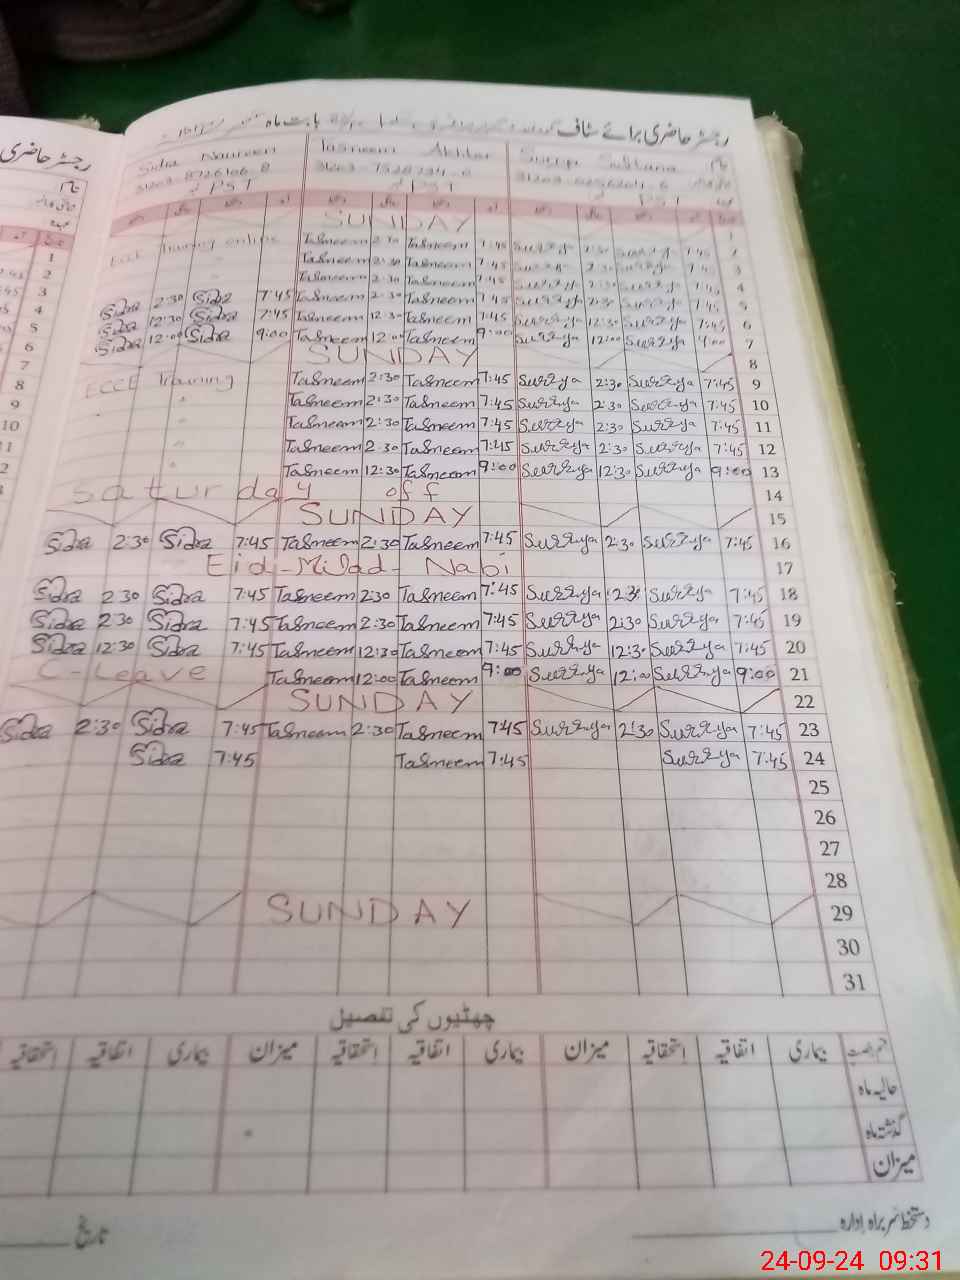 رجسٹر حاضری برائے سٹاف بابت ماہ
رجسٹر حاضری
Sidra Naureen Tasneem Akhtar Surryya Sultana نام
PST PST PST
SUNDAY 1
Training online Tasneem 2:30 Tasneem 7:45 Surryya 2:30 Surryya 7:45 2
" Tasneem 2:30 Tasneem 7:45 Surryya 2:30 Surryya 7:45 3
" Tasneem 2:30 Tasneem 7:45 Surryya 2:30 Surryya 7:45 4
Sidra 2:30 Sidra 7:45 Tasneem 2:30 Tasneem 7:45 Surryya 2:30 Surryya 7:45 5
Sidra 12:30 Sidra 7:45 Tasneem 12:30 Tasneem 7:45 Surryya 12:30 Surryya 7:45 6
Sidra 12:00 Sidra 9:00 Tasneem 12:00 Tasneem 9:00 Surryya 12:00 Surryya 9:00 7
SUNDAY 8
ECCE Training Tasneem 2:30 Tasneem 7:45 Surryya 2:30 Surryya 7:45 9
" Tasneem 2:30 Tasneem 7:45 Surryya 2:30 Surryya 7:45 10
" Tasneem 2:30 Tasneem 7:45 Surryya 2:30 Surryya 7:45 11
" Tasneem 2:30 Tasneem 7:45 Surryya 2:30 Surryya 7:45 12
" Tasneem 12:30 Tasneem 9:00 Surryya 12:30 Surryya 9:00 13
Saturday off 14
SUNDAY 15
Sidra 2:30 Sidra 7:45 Tasneem 2:30 Tasneem 7:45 Surryya 2:30 Surryya 7:45 16
Eid-Milad-Nabi 17
Sidra 2:30 Sidra 7:45 Tasneem 2:30 Tasneem 7:45 Surryya 2:30 Surryya 7:45 18
Sidra 2:30 Sidra 7:45 Tasneem 2:30 Tasneem 7:45 Surryya 2:30 Surryya 7:45 19
Sidra 12:30 Sidra 7:45 Tasneem 12:30 Tasneem 7:45 Surryya 12:30 Surryya 7:45 20
C-Leave Tasneem 12:00 Tasneem 9:00 Surryya 12:00 Surryya 9:00 21
SUNDAY 22
Sidra 2:30 Sidra 7:45 Tasneem 2:30 Tasneem 7:45 Surryya 2:30 Surryya 7:45 23
Sidra 7:45 Tasneem 7:45 Surryya 7:45 24
25
26
27
28
SUNDAY 29
30
31
چھٹیوں کی تفصیل
قسم رخصت بیماری اتفاقیہ استحقاقیہ میزان بیماری اتفاقیہ استحقاقیہ میزان بیماری اتفاقیہ استحقاقیہ
حالیہ ماہ
گذشتہ ماہ
میزان
دستخط سربراہ ادارہ تاریخ
24-09-24 09:31